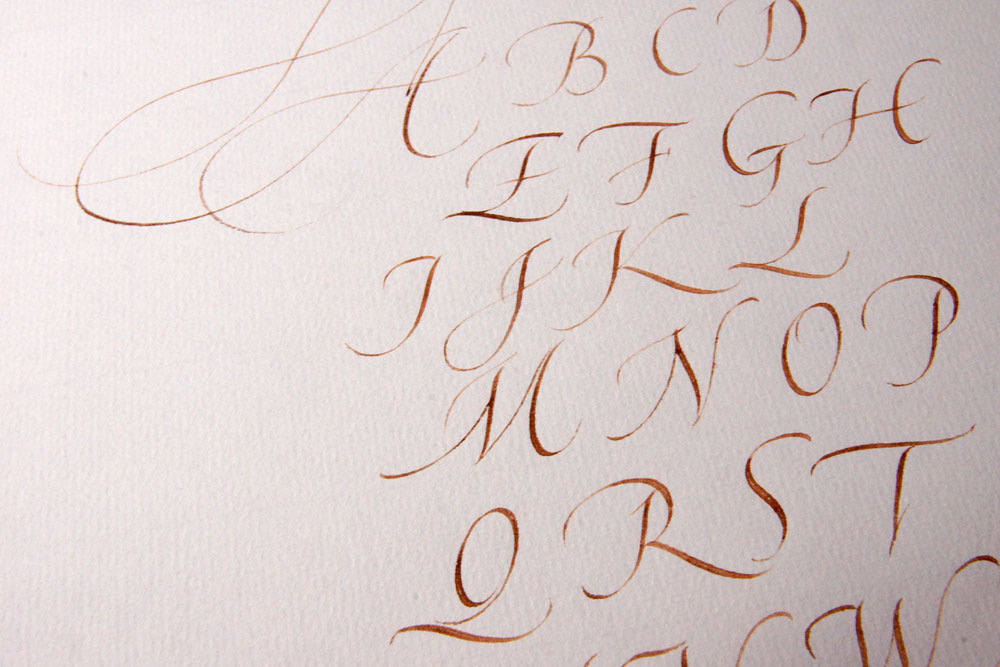 A B C D
E F G H
I J K L
M N O P
Q R S T
V W